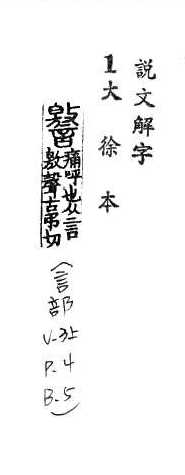 説文解字
1大徐本
譥痛呼也从言
敫聲古弔切
(言部
V.3上
P.4
B.5)